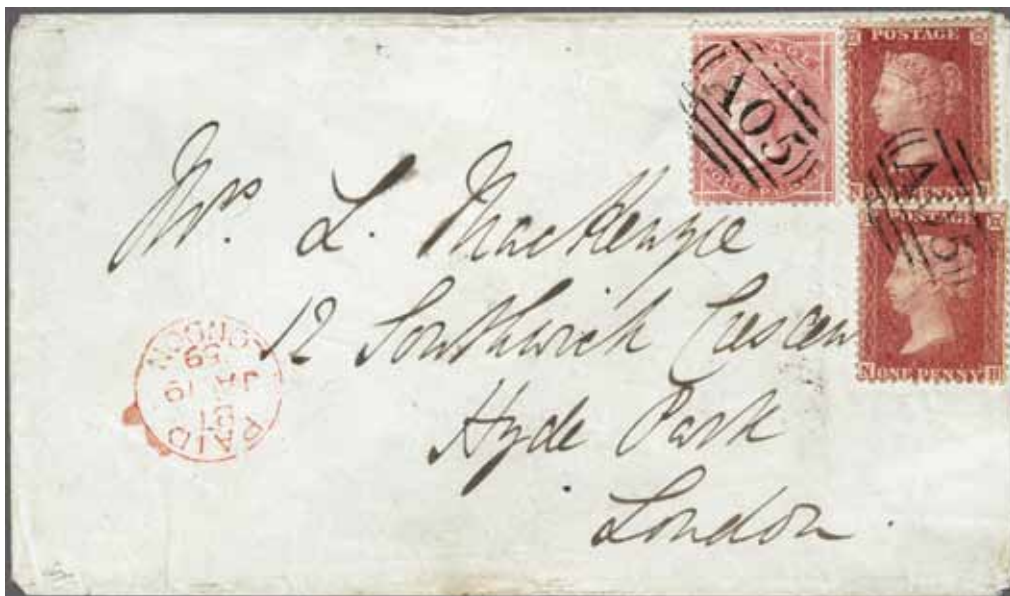 POSTAGE
A05
ONE PENNY
A05
POSTAGE
ONE PENNY
Mrs. L. Mackenzie
12 Southwick Crescen
Hyde Park
London.
LONDON
69
JA 19
PAID